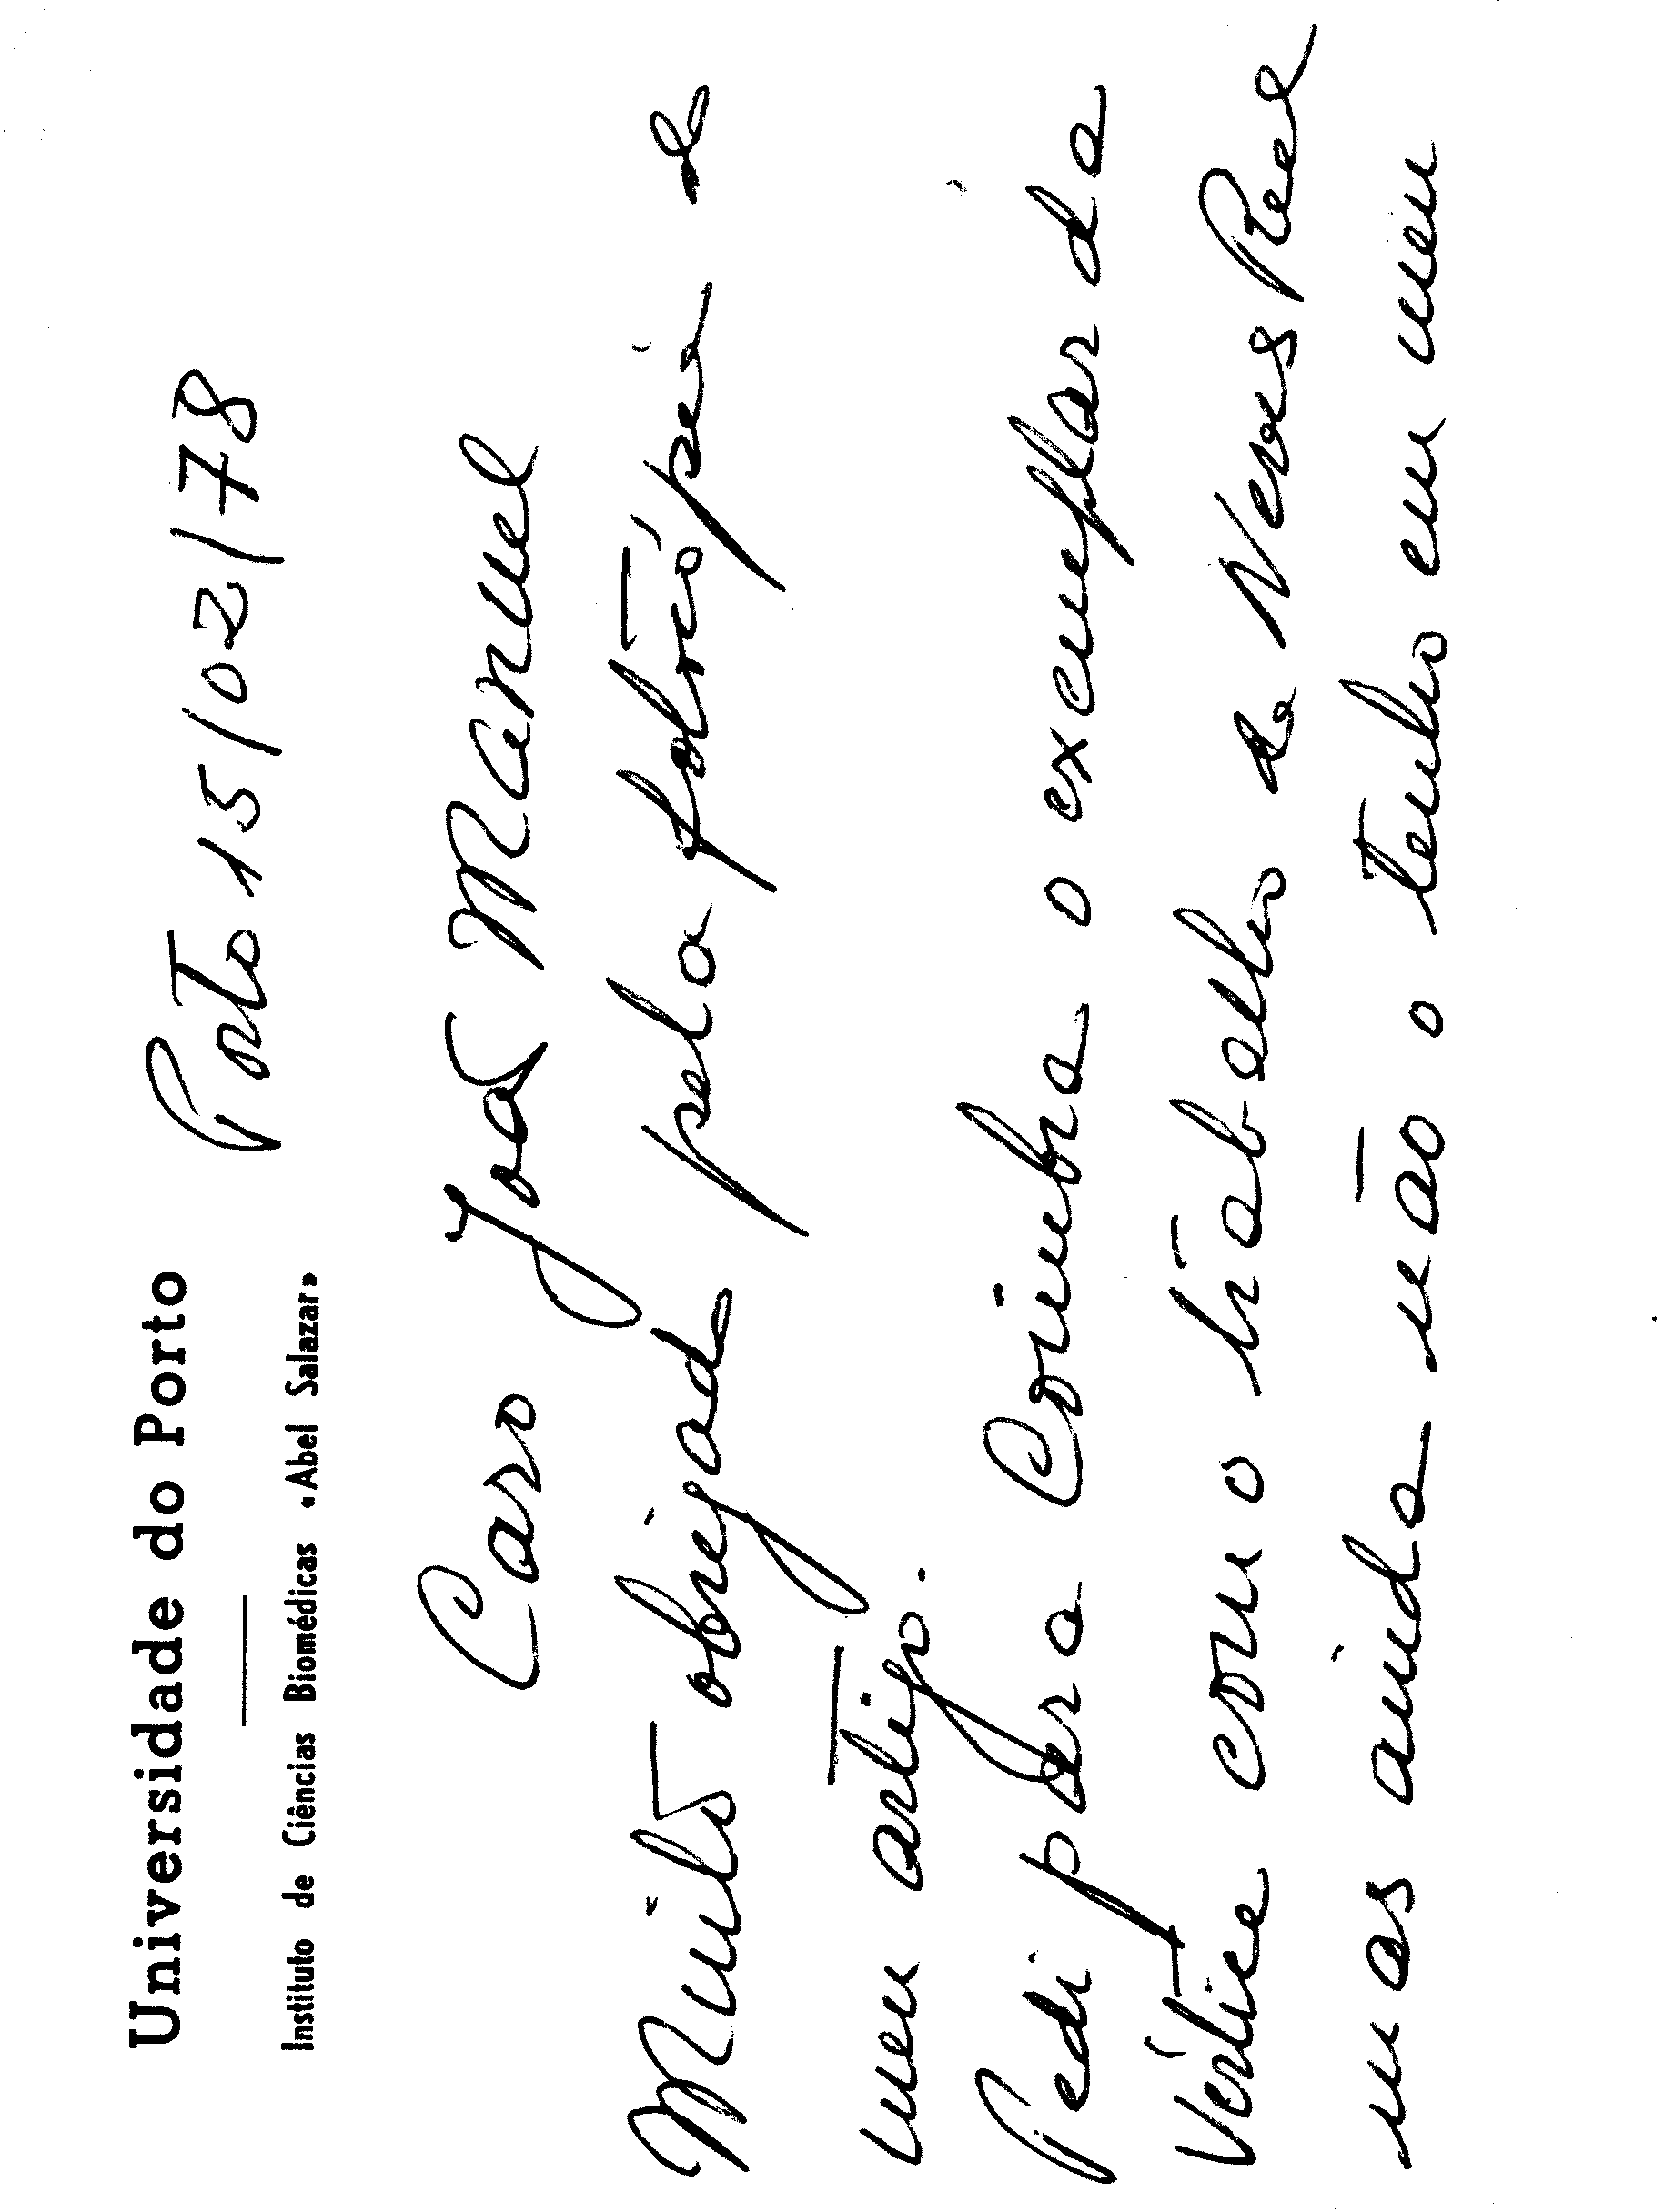 Universidade do Porto
Instituto de Ciências Biomédicas «Abel Salazar»
Porto 15/02/78
Caro João Manuel
Muito obrigado pela fotocópia de
meu artigo.
Pedi para Coimbra o exemplar da
Vértice com o trabalho de Neves Real
mas ainda não o tenho em meu